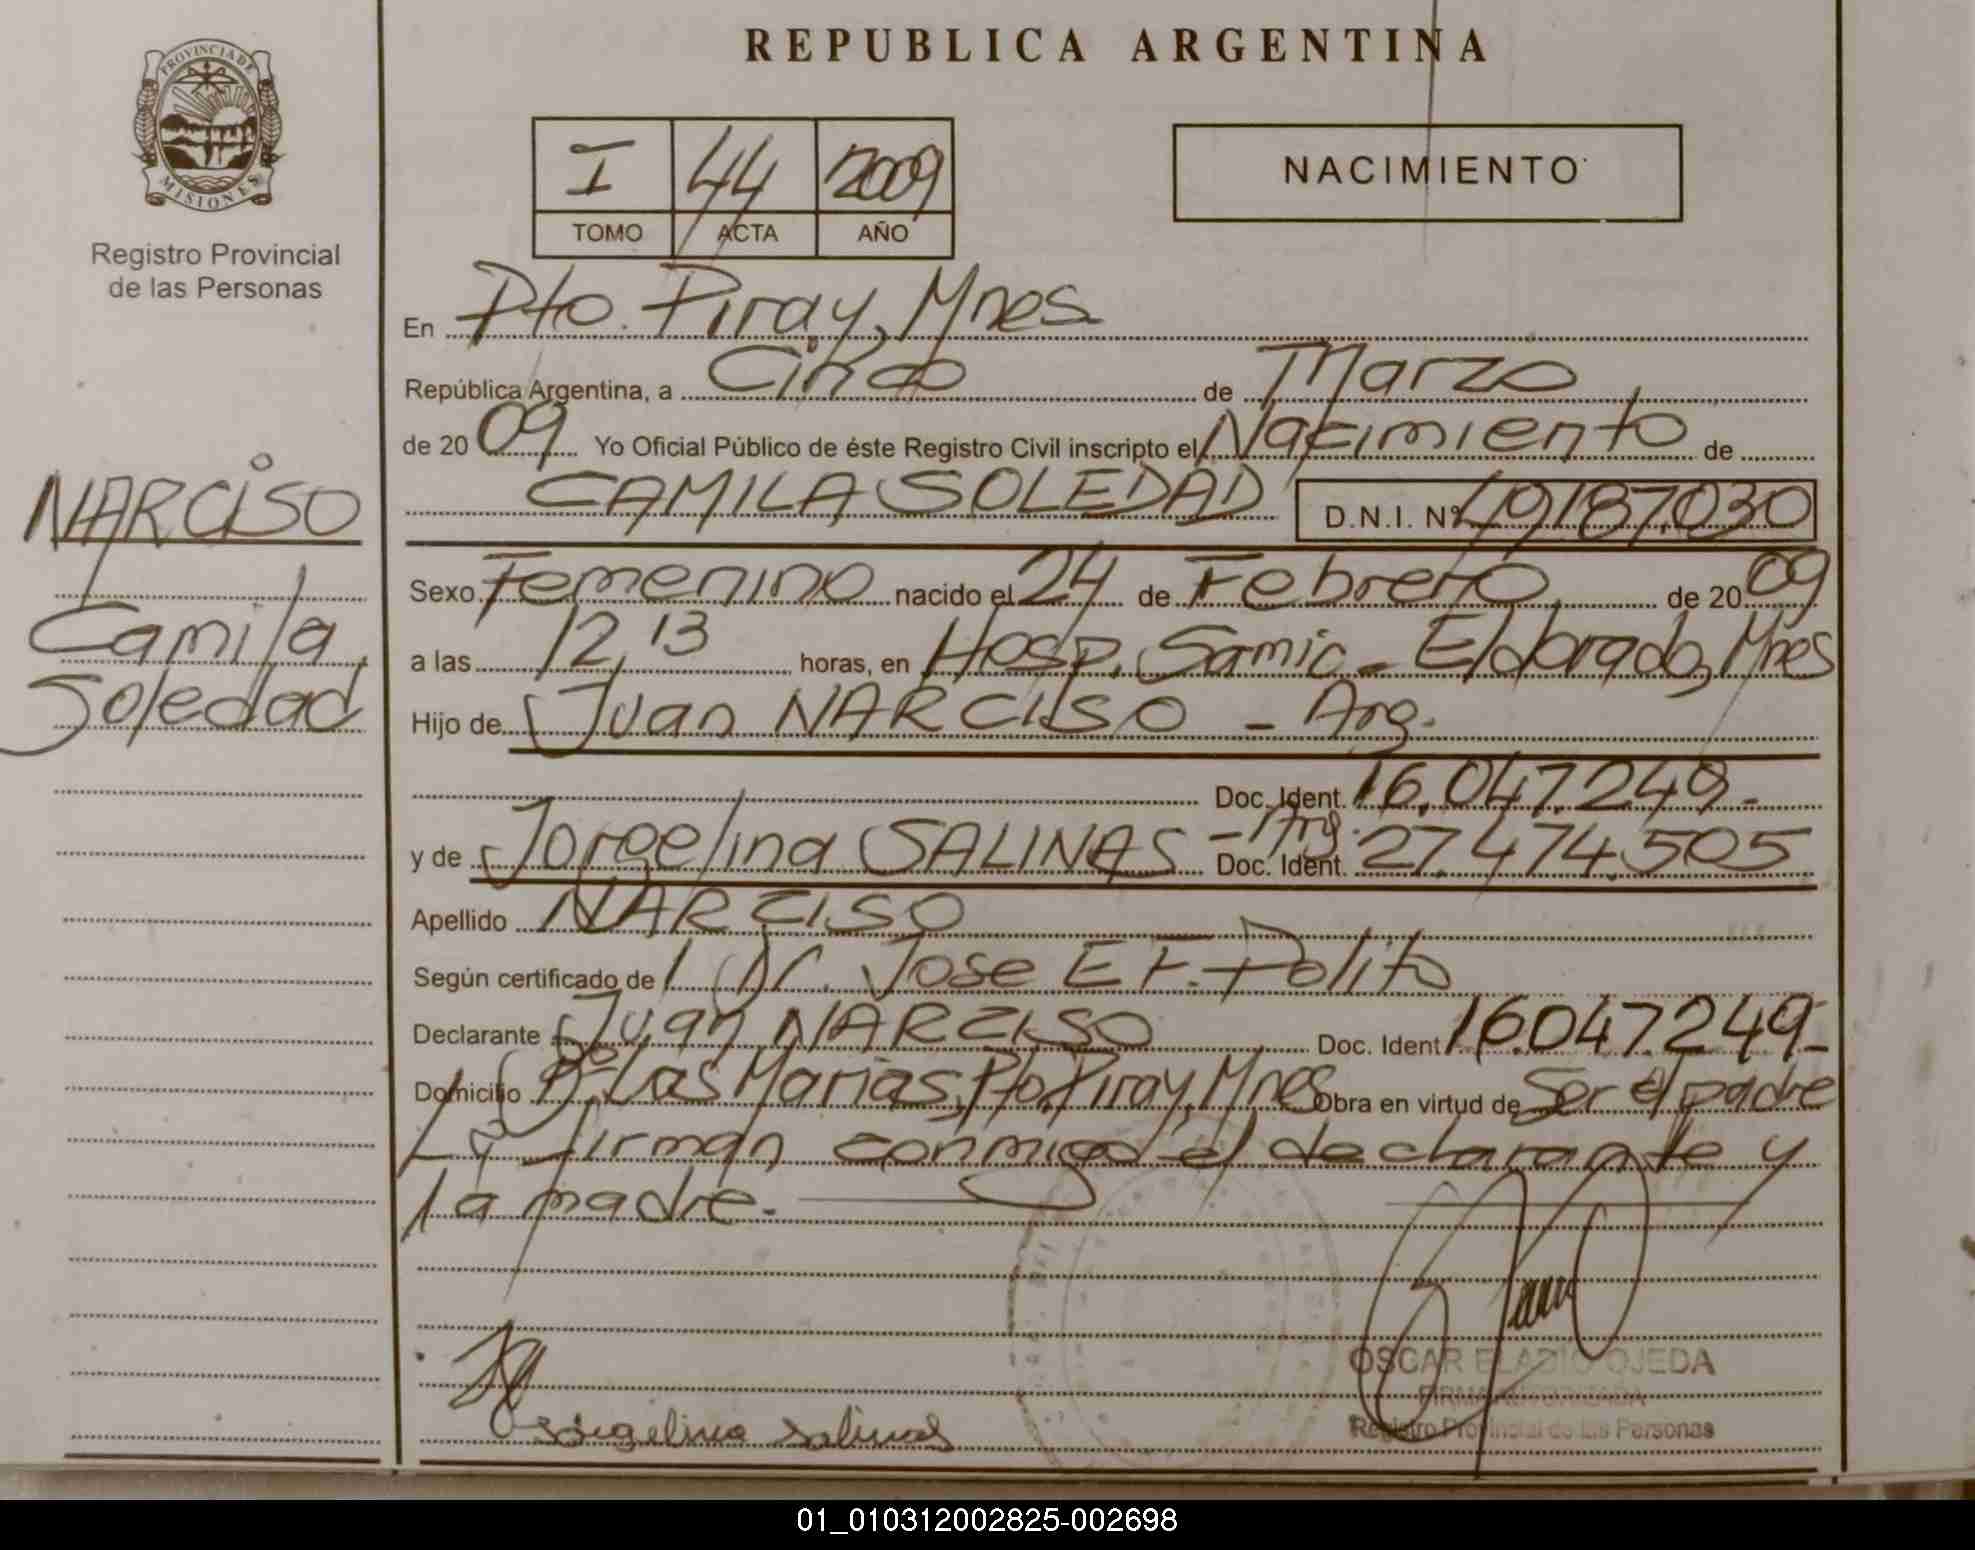 REPUBLICA ARGENTINA
PROVINCIA DE
MISIONES
Registro Provincial
de las Personas
I 44 2009
TOMO ACTA AÑO
NACIMIENTO
NARCISO
Camila
Soledad
En Pto. Piray, Mnes.
República Argentina, a Cinco de Marzo
de 2009 Yo Oficial Público de éste Registro Civil inscripto el Nacimiento de
CAMILA SOLEDAD D.N.I. Nº 49.187.030
Sexo Femenino nacido el 24 de Febrero de 2009
a las 12,13 horas, en Hosp. Samic - Eldorado, Mnes
Hijo de Juan NARCISO - Arg.
Doc. Ident. 16.047.249-
y de Jorgelina SALINAS - Arg. Doc. Ident. 27.474.505
Apellido NARCISO
Según certificado de Dr. Jose E F. Polito
Declarante Juan NARCISO Doc. Ident 16.047.249-
Domicilio Bº Las Marias, Pto. Piray, Mnes Obra en virtud de Ser el padre
firman conmigo el declarante y
la madre.-
OSCAR ELADIO OJEDA
FIRMA AUTORIZADA
Registro Provincial de las Personas
Jorgelina Salinas
01_010312002825-002698